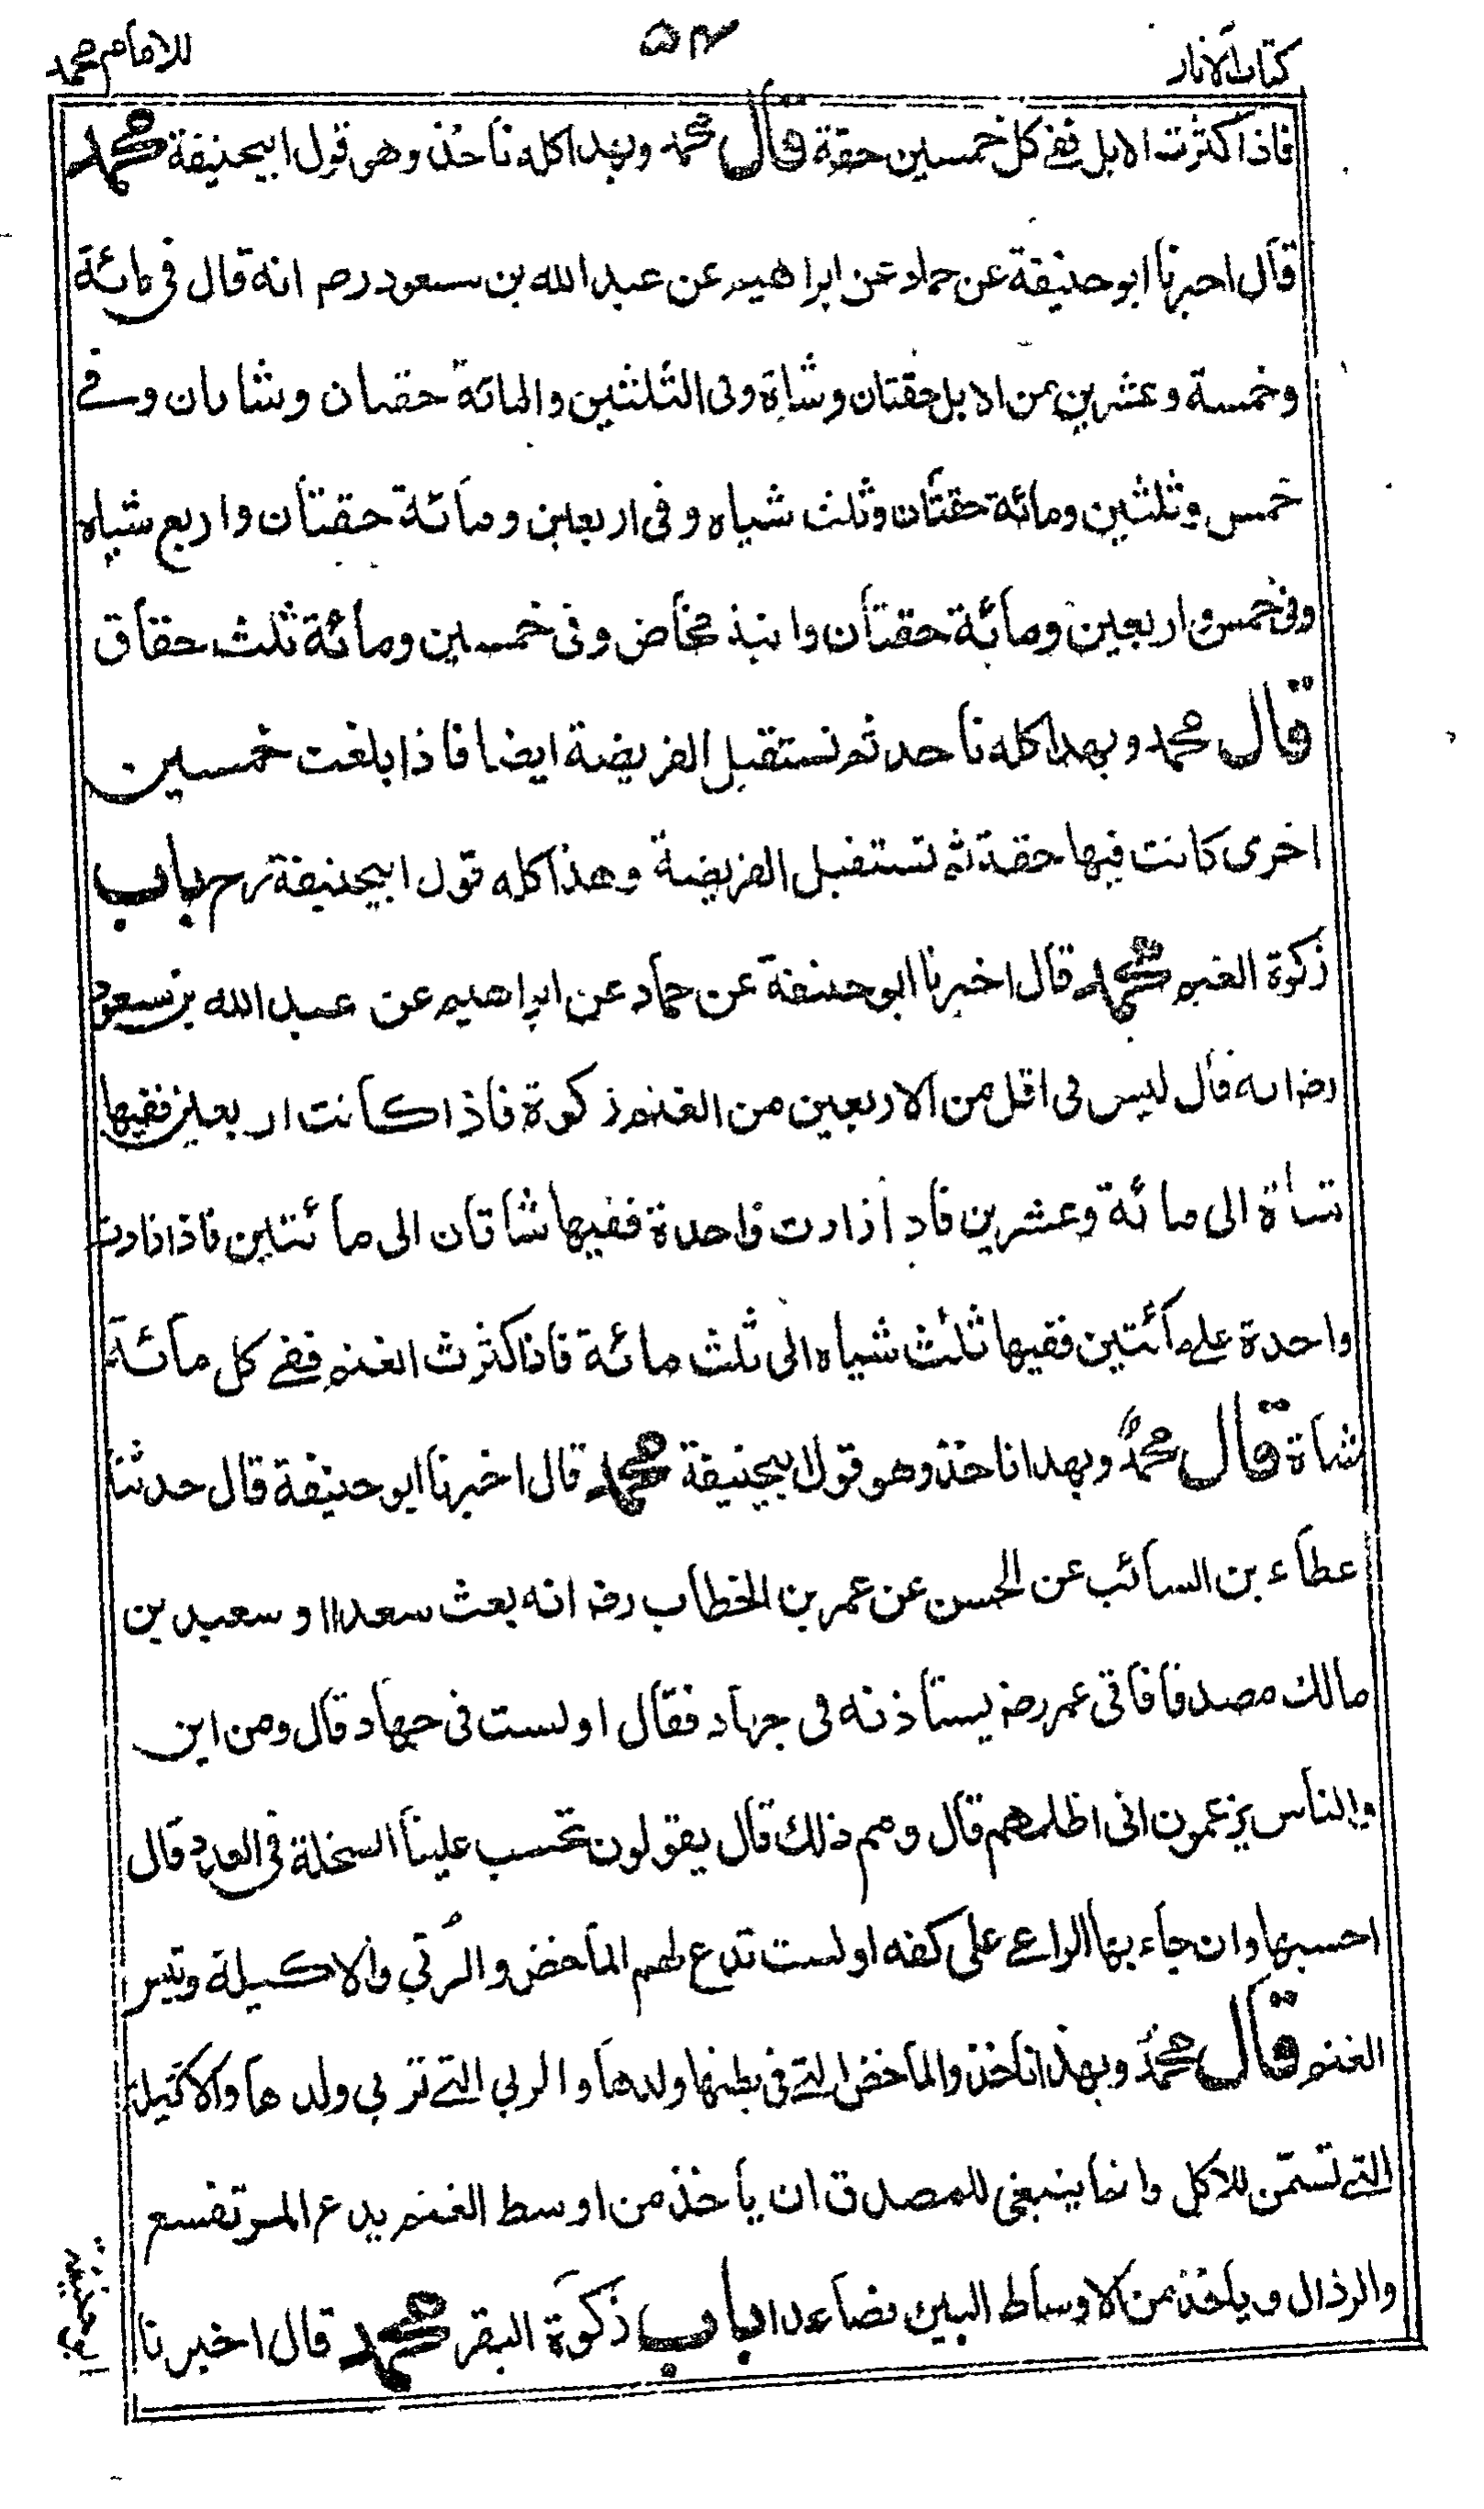 كتاب الآثار
٥٣
للامام محمد
فاذا كثرت الابل ففي كل خمسين حقة قال محمد وبهذا كله نأخذ وهو قول ابيحنيفة محمد
قال اخبرنا ابو حنيفة عن حماد عن ابراهيم عن عبد الله بن مسعود رضـ انه قال في مائة
وخمسة وعشرين من الابل حقتان وشاة وفي الثلثين والمائة حقتان وشاتان وفي
خمس وثلثين ومائة حقتان وثلث شياه وفي اربعين ومائة حقتان واربع شياه
وفي خمس واربعين ومائة حقتان وابنة مخاض وفي خمسين ومائة ثلث حقاق
قال محمد وبهذا كله نأخذ ثم نستقبل الفريضة ايضا فاذا بلغت خمسين
اخرى كانت فيها حقة ثم تستقبل الفريضة وهذا كله قول ابيحنيفة رح باب
زكوة الغنم محمد قال اخبرنا ابو حنيفة عن حماد عن ابراهيم عن عبد الله بن مسعود
رضـ انه قال ليس في اقل من الاربعين من الغنم زكوة فاذا كانت اربعين ففيها
شاة الى مائة وعشرين فاذا زادت واحدة ففيها شاتان الى مائتين فاذا زادت
واحدة على مائتين ففيها ثلث شياه الى ثلث مائة فاذا كثرت الغنم ففي كل مائة
شاة قال محمد وبهذا ناخذ وهو قول ابيحنيفة محمد قال اخبرنا ابو حنيفة قال حدثنا
عطاء بن السائب عن الحسن عن عمر بن الخطاب رضـ انه بعث سعدا او سعيد بن
مالك مصدقا فاتى عمر رضـ يستأذنه في جهاد فقال اولست في جهاد قال ومن اين
والناس يزعمون اني اظلمهم قال ومم ذلك قال يقولون تحسب علينا السخلة في العدد قال
احسبها وان جاء بها الراعي على كفه اولست تدع لهم الماخض والربي والاكيلة وتيس
الغنم قال محمد وبهذا ناخذ والماخض التي في بطنها ولدها والربي التي تربي ولدها والاكيلة
التي تسمن للاكل وانما ينبغي للمصدق ان يأخذ من اوسط الغنم يدع المرتفع
والرذال وياخذ من الاوساط البين فصاعدا باب زكوة البقر محمد قال اخبرنا